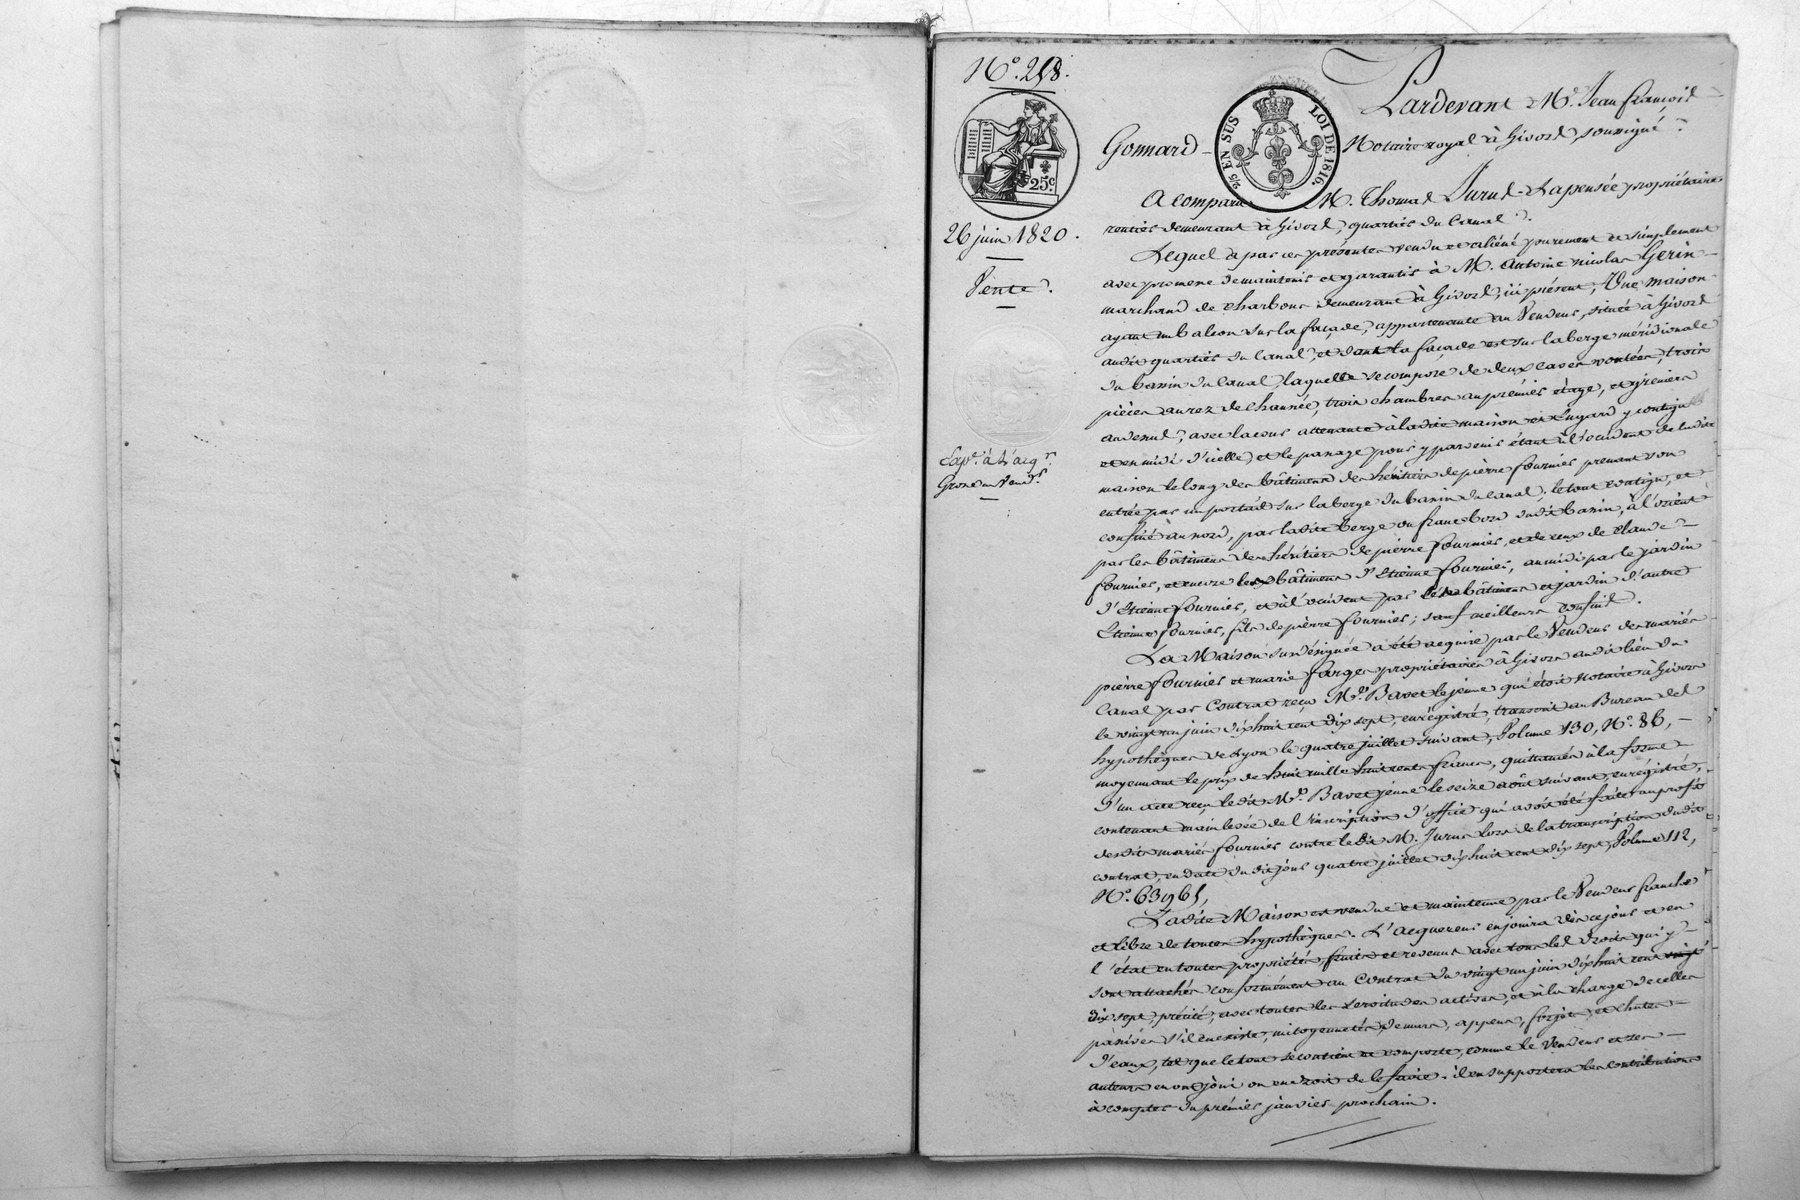 N.° 258.
25c.
26 juin 1820.
Vente.
Exp.on à l'acq.r
Grosse au Vend.r
2/5 EN SUS LOI DE 1816.
Pardevant M.e Jean françois
Gonnard Notaire royal à Givors, soussigné.
A comparu M. Thomas Jurus-Lapensée propriétaire
rentier demeurant à Givors, quartier du Canal.
Lequel a par ces présentes vendu et aliéné purement et simplement
avec promesse de maintenir et garantir à M. Antoine Nicolas Gérin
marchand de charbons demeurant à Givors, ici présent, Une maison
ayant un balcon sur la façade, appartenante au Vendeur, située à Givors
audit quartier du Canal, et dont la façade est sur la berge méridionale
du bassin du Canal, laquelle se compose de deux caves voutées, trois
pièces au rez de chaussée, trois chambres au premier étage, et greniers
au dessus, avec la cour attenante à ladite maison et hangard y contigu
et en midi d'icelle, et le passage pour y parvenir étant à l'occident de ladite
maison le long des bâtimens des héritiers de pierre fournier prenant son
entrée par un portail sur la berge du bassin du Canal. le tout contigu, et
confiné au nord, par ladite berge ou franc bord dudit bassin, à l'orient
par les bâtimens des héritiers de pierre fournier, et de ceux de Claude
fournier, et encore les bâtimens d'Etienne fournier, au midi par le jardin
d'Etienne fournier, et à l'occident par les bâtimens et jardin d'autre
Etienne fournier, fils de pierre fournier; sauf meilleurs confins.
La Maison sus désignée a été acquise par le Vendeur des mariés
pierre fournier et marie farges propriétaires à Givors audit lieu du
Canal par Contrat reçu M.e Bavet le jeune qui étoit Notaire à Givors
le vingt un juin dix huit cent dix sept, enregistré, transcrit au Bureau des
hypothèques de Lyon le quatre juillet suivant, Volume 130, N.° 86,
moyennant le prix de huit mille huit cents francs, quittancés à la forme
d'un acte reçu ledit M.e Bavet jeune le seize août suivant, enregistré,
contenant main levée de l'inscription d'office qui avoit été faite au profit
desdits mariés fournier contre ledit M. Jurus lors de la transcription dudit
contrat, en date dudit jour quatre juillet dix huit cent dix sept, Volume 112,
N.° 63965,
Ladite Maison est vendue et maintenue par le Vendeur franche
et libre de toutes hypothèques. L'acquereur en jouira dès ce jour et en
l'état en toutes propriétés, fruits et revenus avec tous les droits qui y
sont attachés conformément au Contrat du vingt un juin dix huit cent vingt
dix sept, précité, avec toutes les servitudes actives, et à la charge de celles
passives s'il en existe, mitoyennetés de murs, appens, forjets, et chutes
d'eaux, tel que le tout se contient et comporte, comme le Vendeur et ses
auteurs en ont joui ou eu droit de le faire. il en supportera les contributions
à compter du premier janvier prochain.